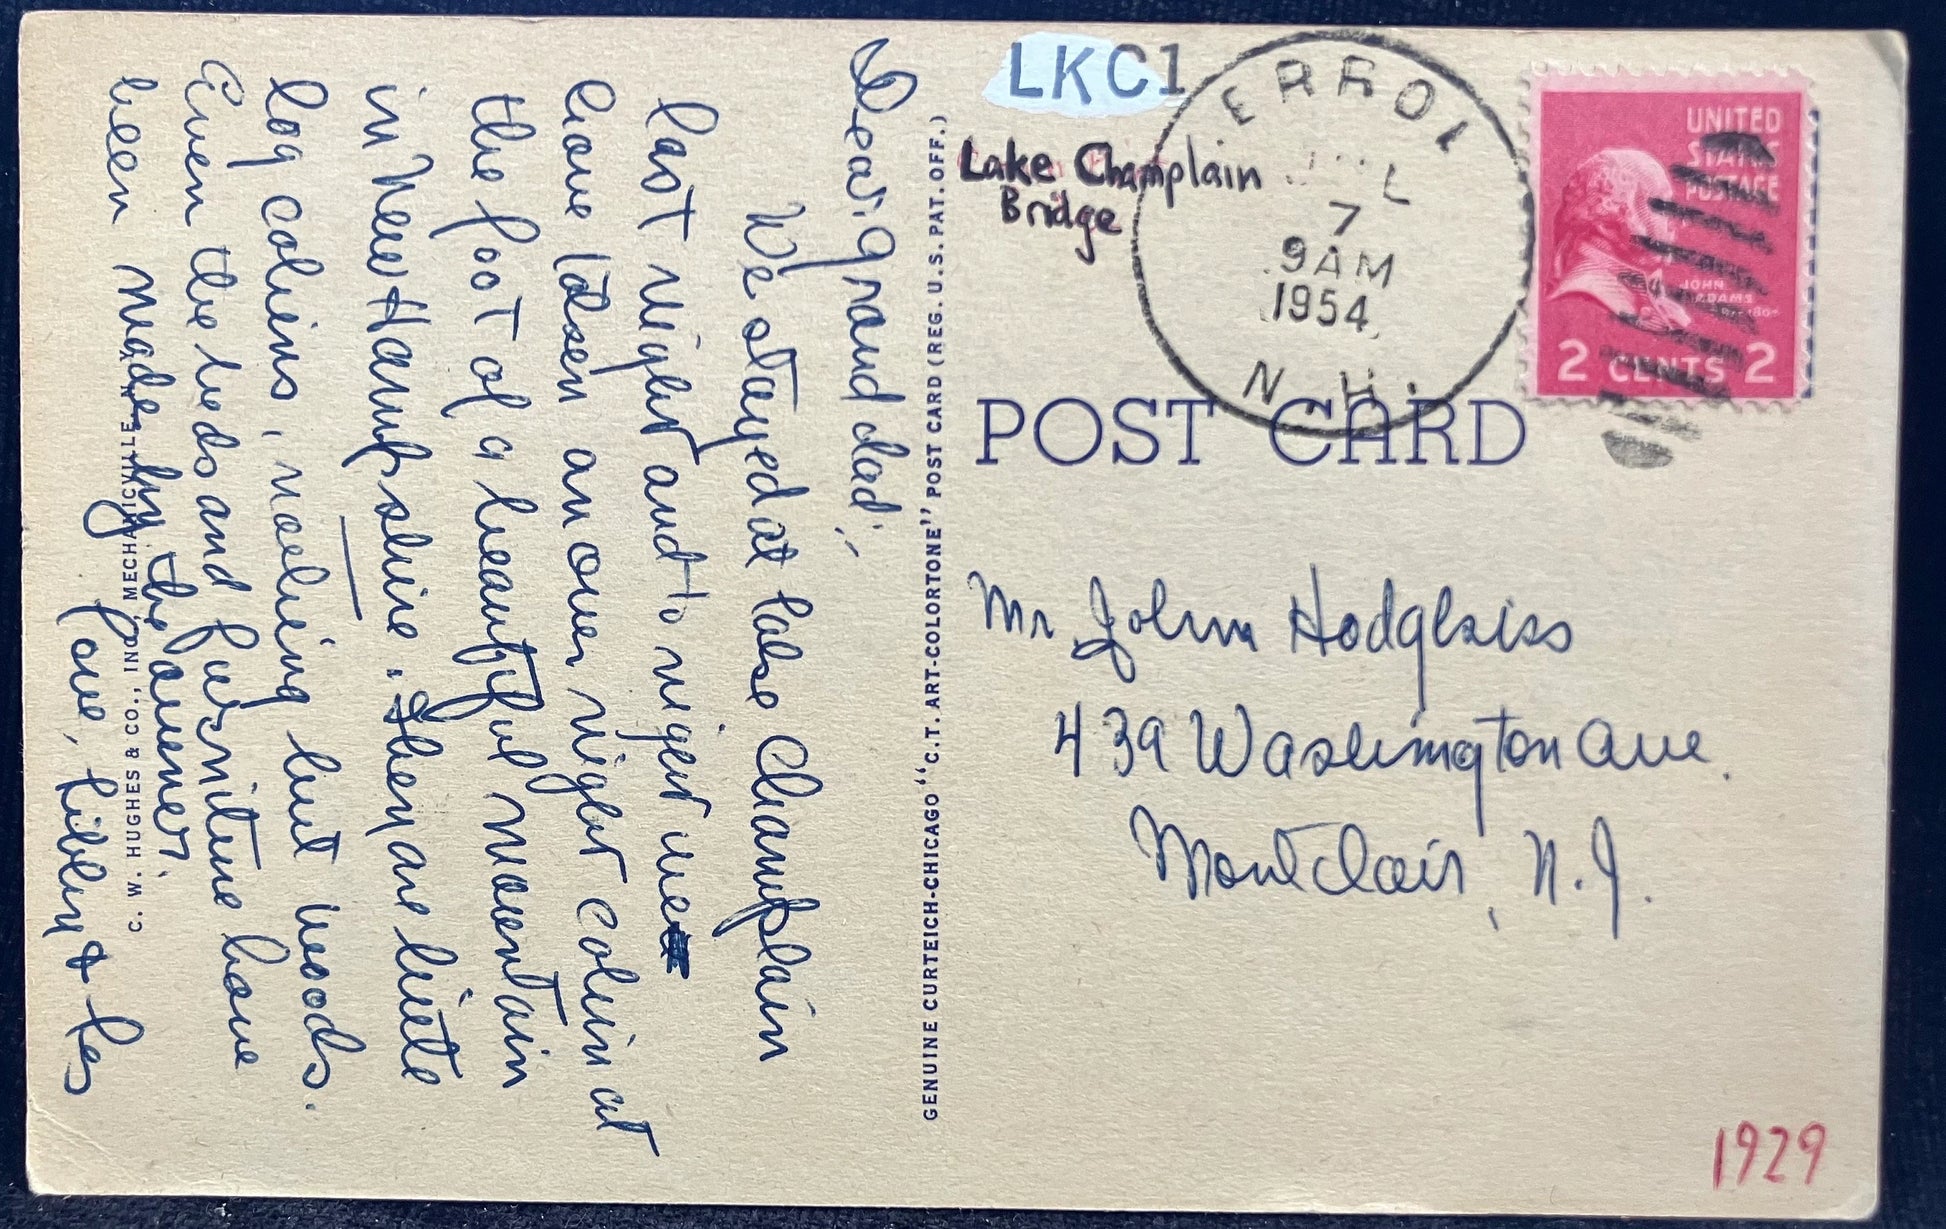 LKC1
Lake Champlain
Bridge
ERROL
7
9AM
1954
N.H.
UNITED
STATES
POSTAGE
JOHN
ADAMS
2 CENTS 2
POST CARD
Mr John Hodgkiss
439 Washington Ave.
Montclair, N.J.
1929
GENUINE CURTEICH-CHICAGO "C.T. ART-COLORTONE" POST CARD (REG. U.S. PAT. OFF.)
Dear Granddad:-
We stayed at Lake Champlain
last night and to night we
have taken an over night cabin at
the foot of a beautiful mountain
in New Hampshire. They are little
log cabins, nothing but woods.
Even the beds and furniture have
been made by the owner.
Love, Libby & Les
C. W. HUGHES & CO., INC., MECHANICVILLE, N.